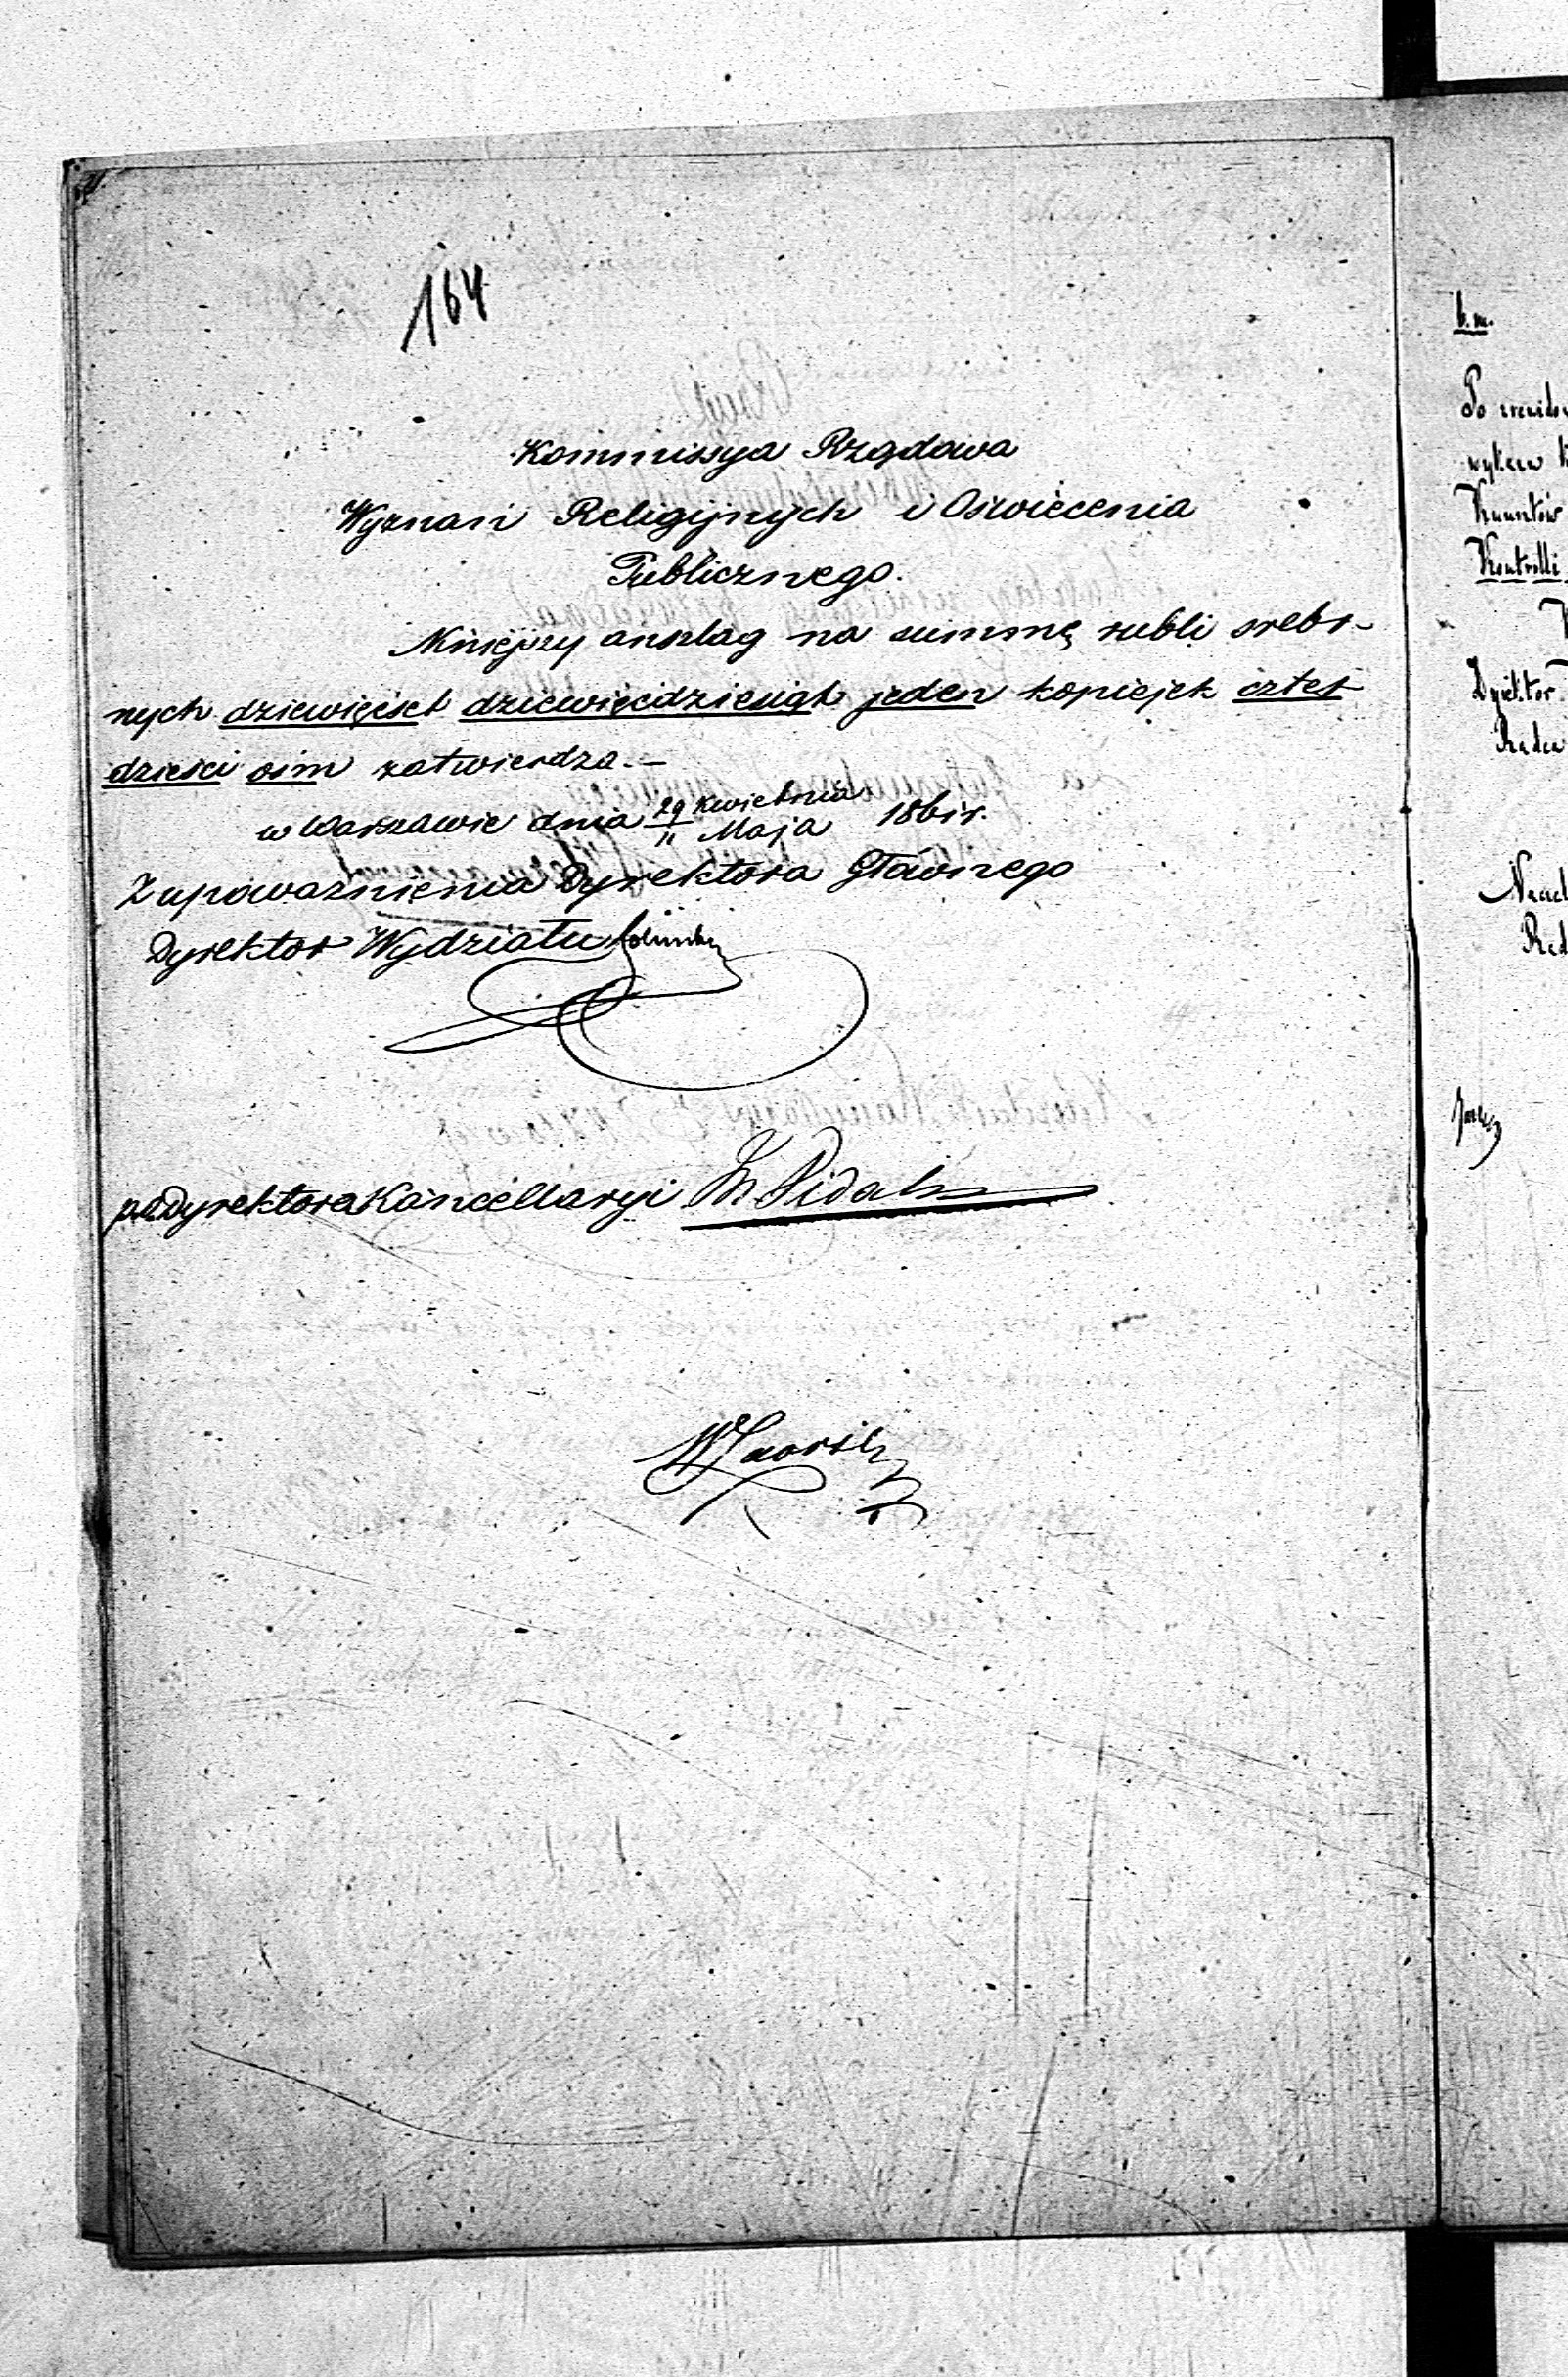 164
Kommissya Rządowa
Wyznań Religijnych i Oświecenia
Publicznego.
Niniejszy anszlag na summę rubli srebr-
nych dziewięćset dziewięćdziesiąt jeden kopiejek czter
dzieści ośm zatwierdza.—
w Warszawie dnia 29/11 Kwietnia/Maja 1861 r.
Z upoważnienia Dyrektora Głównego
Dyrektor Wydziału
pa Dyrektora Kancellaryi
b. m.
Po
Kontrolli
Dyrektor
Radca